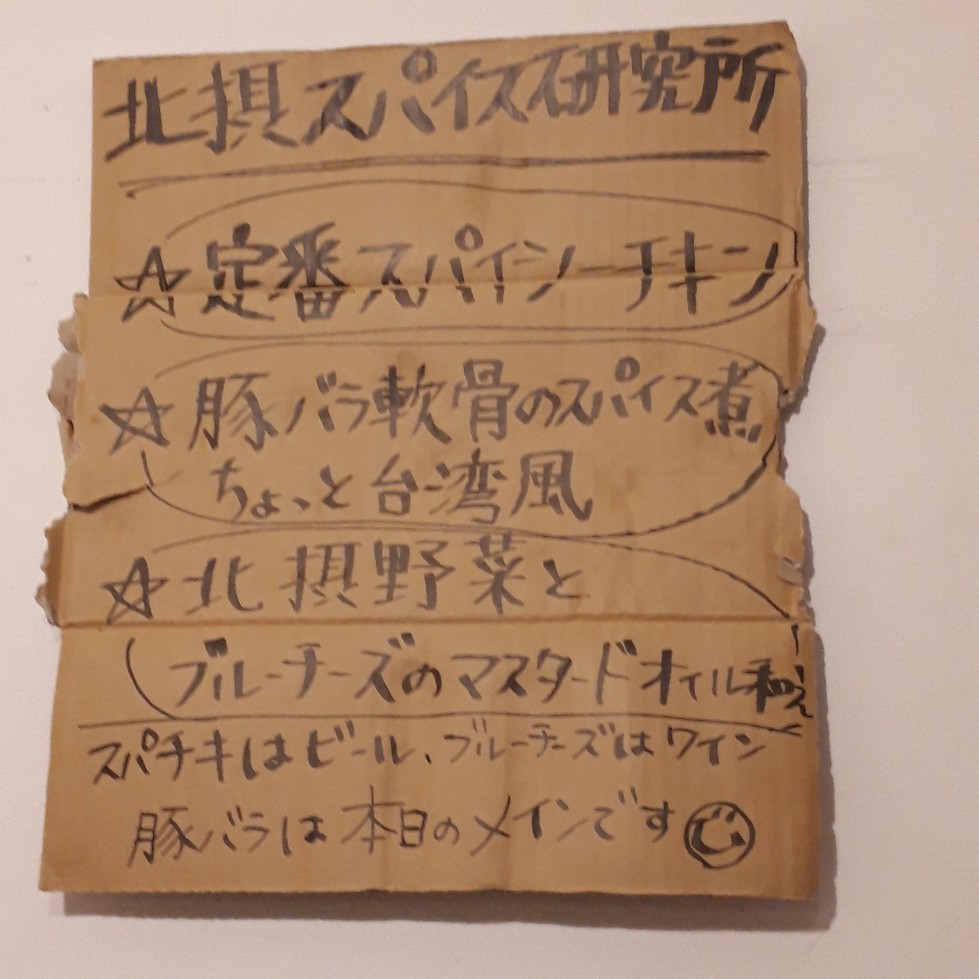 北摂スパイス研究所
☆定番スパイシーチキン
☆豚バラ軟骨のスパイス煮
ちょっと台湾風
☆北摂野菜と
ブルーチーズのマスタードオイル和え
スパチキはビール、ブルーチーズはワイン
豚バラは本日のメインです